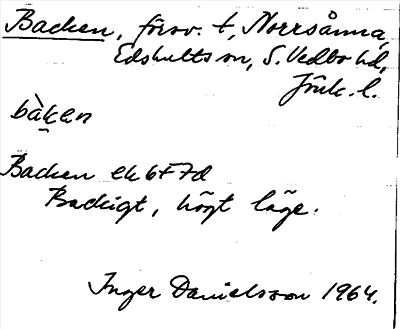 Backen, försv. t, Norrsånna,
Edshults sn, S. Vedbo hd,
Jönk. l.
bàḵen
Backen ek 6F7d
Backigt, högt läge.
Inger Danielsson 1964.